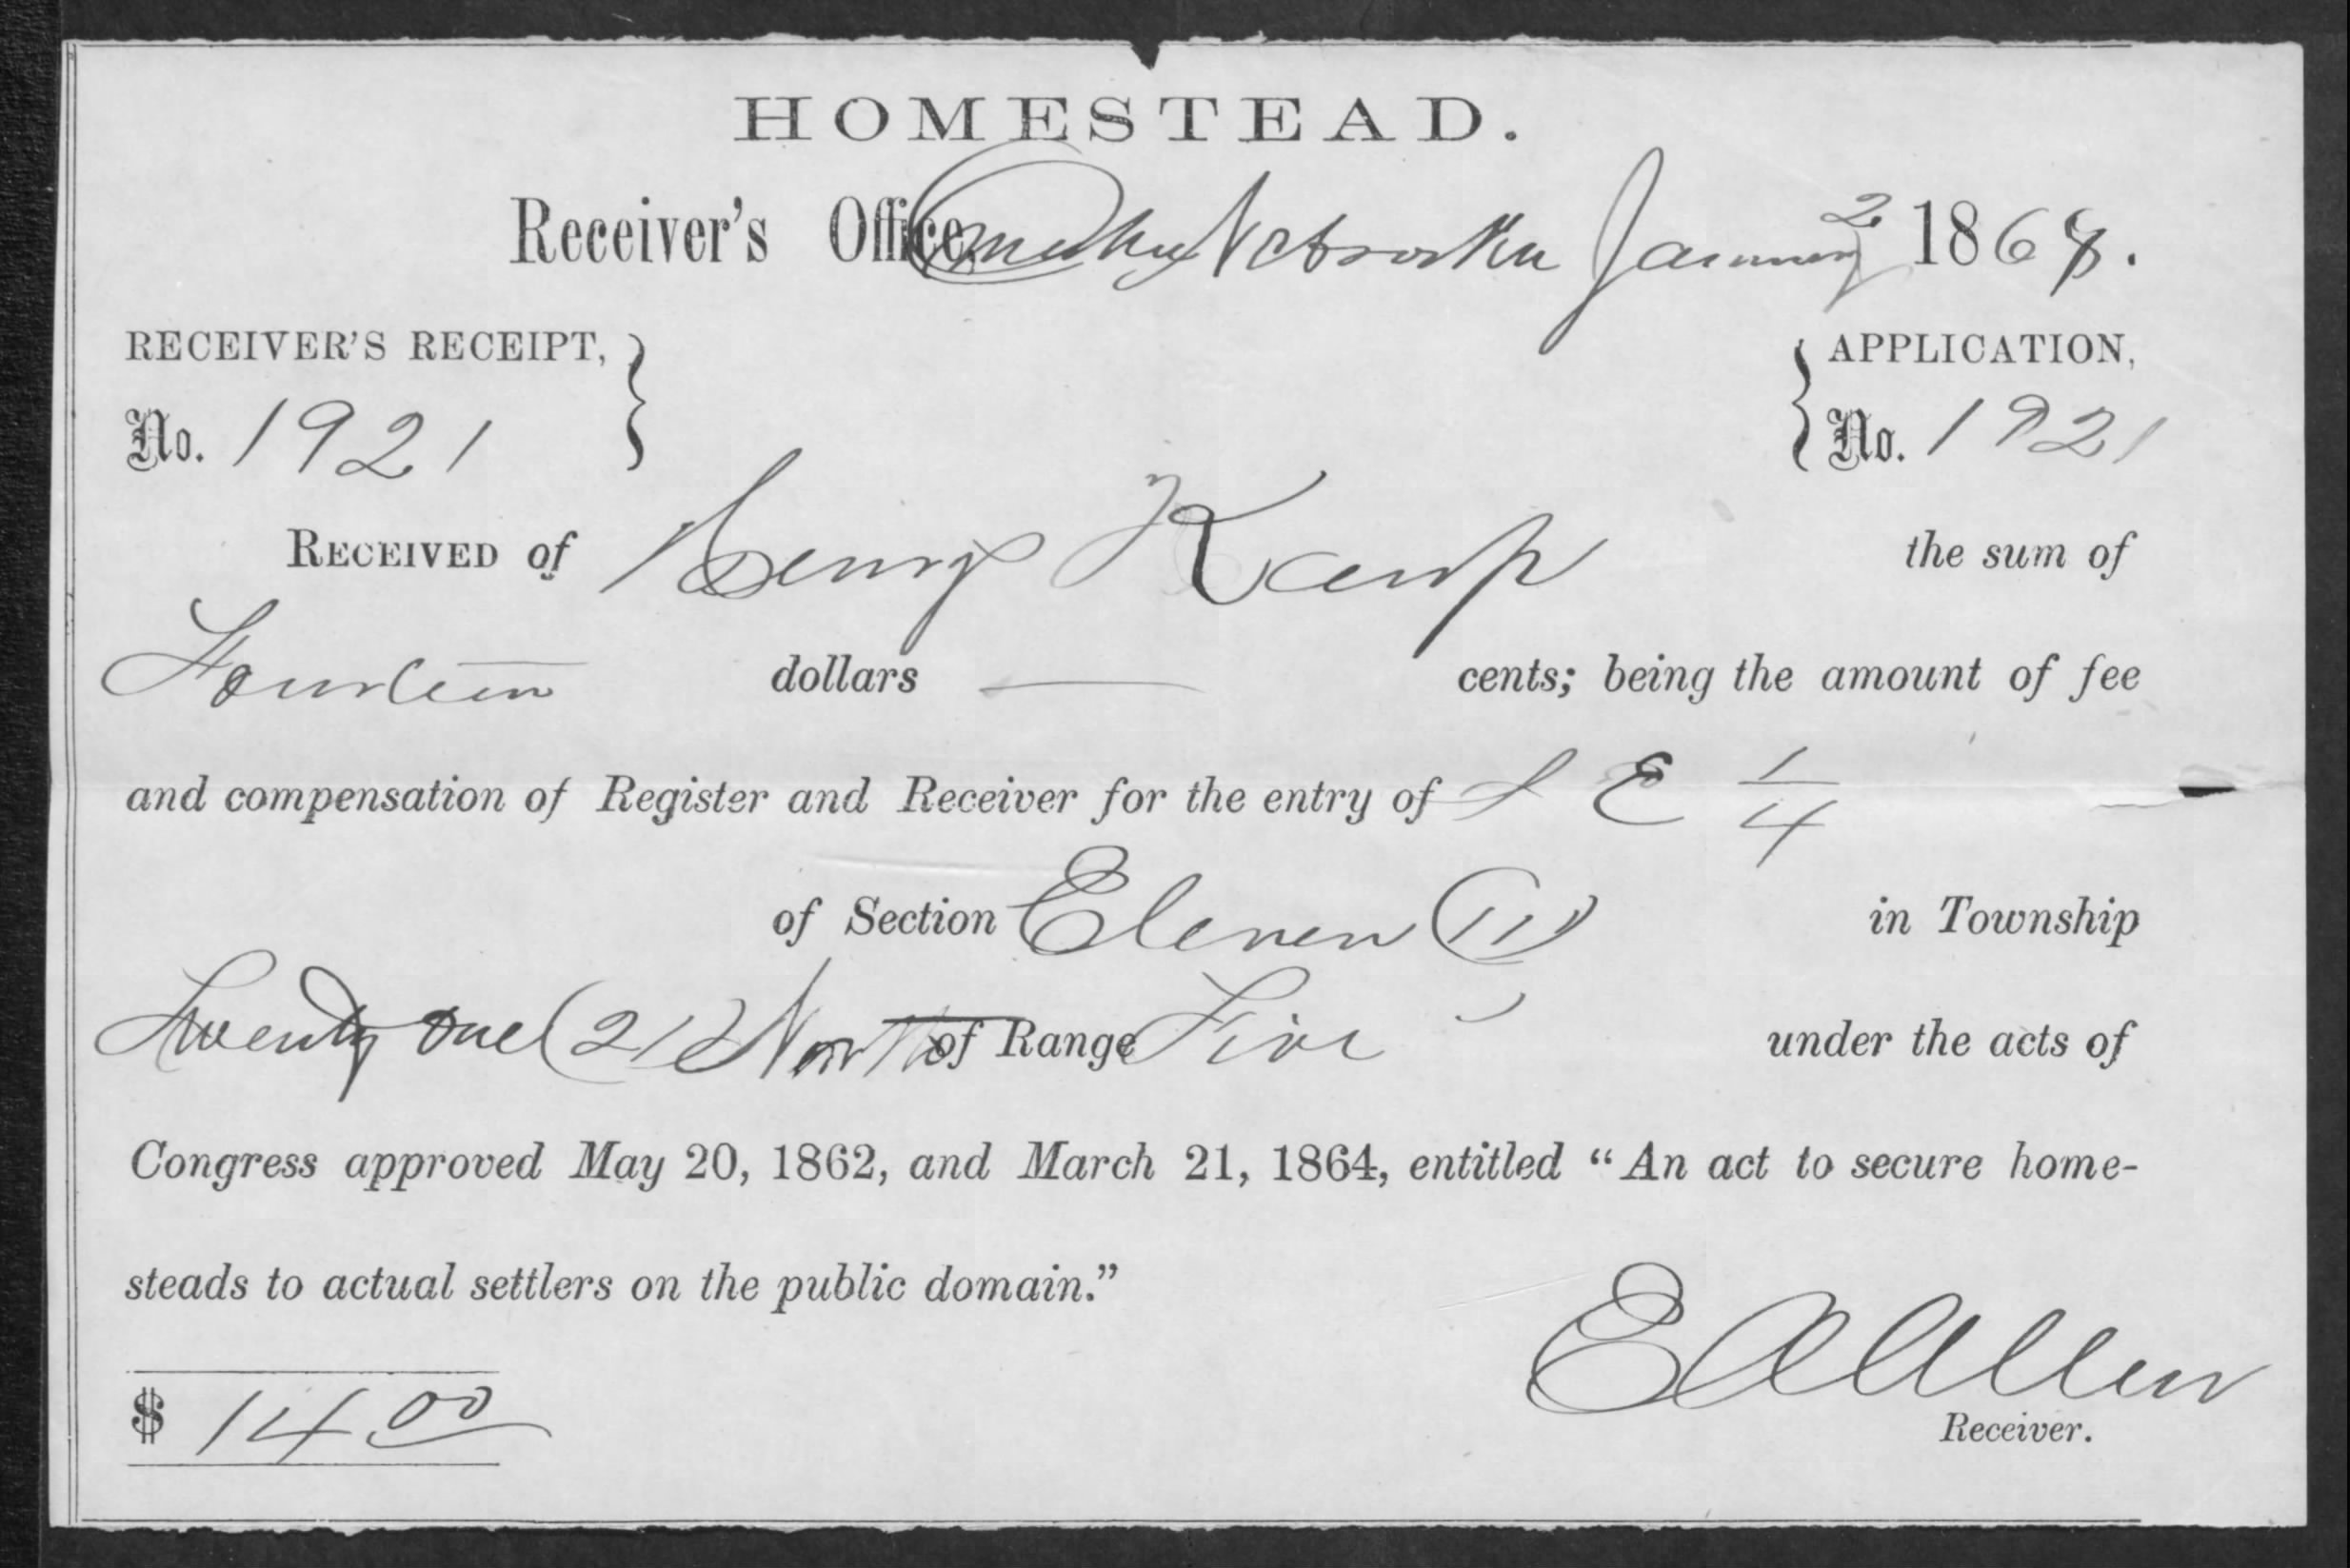 HOMESTEAD.
Receiver's Office Omaha Nebraska January 2 1868.
RECEIVER'S RECEIPT, APPLICATION,
No. 1921 No. 1921
RECEIVED of Henry Kamp the sum of
Fourteen dollars — cents; being the amount of fee
and compensation of Register and Receiver for the entry of S E 1/4
of Section Eleven (11) in Township
Twenty one (21) North of Range Five under the acts of
Congress approved May 20, 1862, and March 21, 1864, entitled “An act to secure home-
steads to actual settlers on the public domain.”
$ 14 00
E A Allen
Receiver.